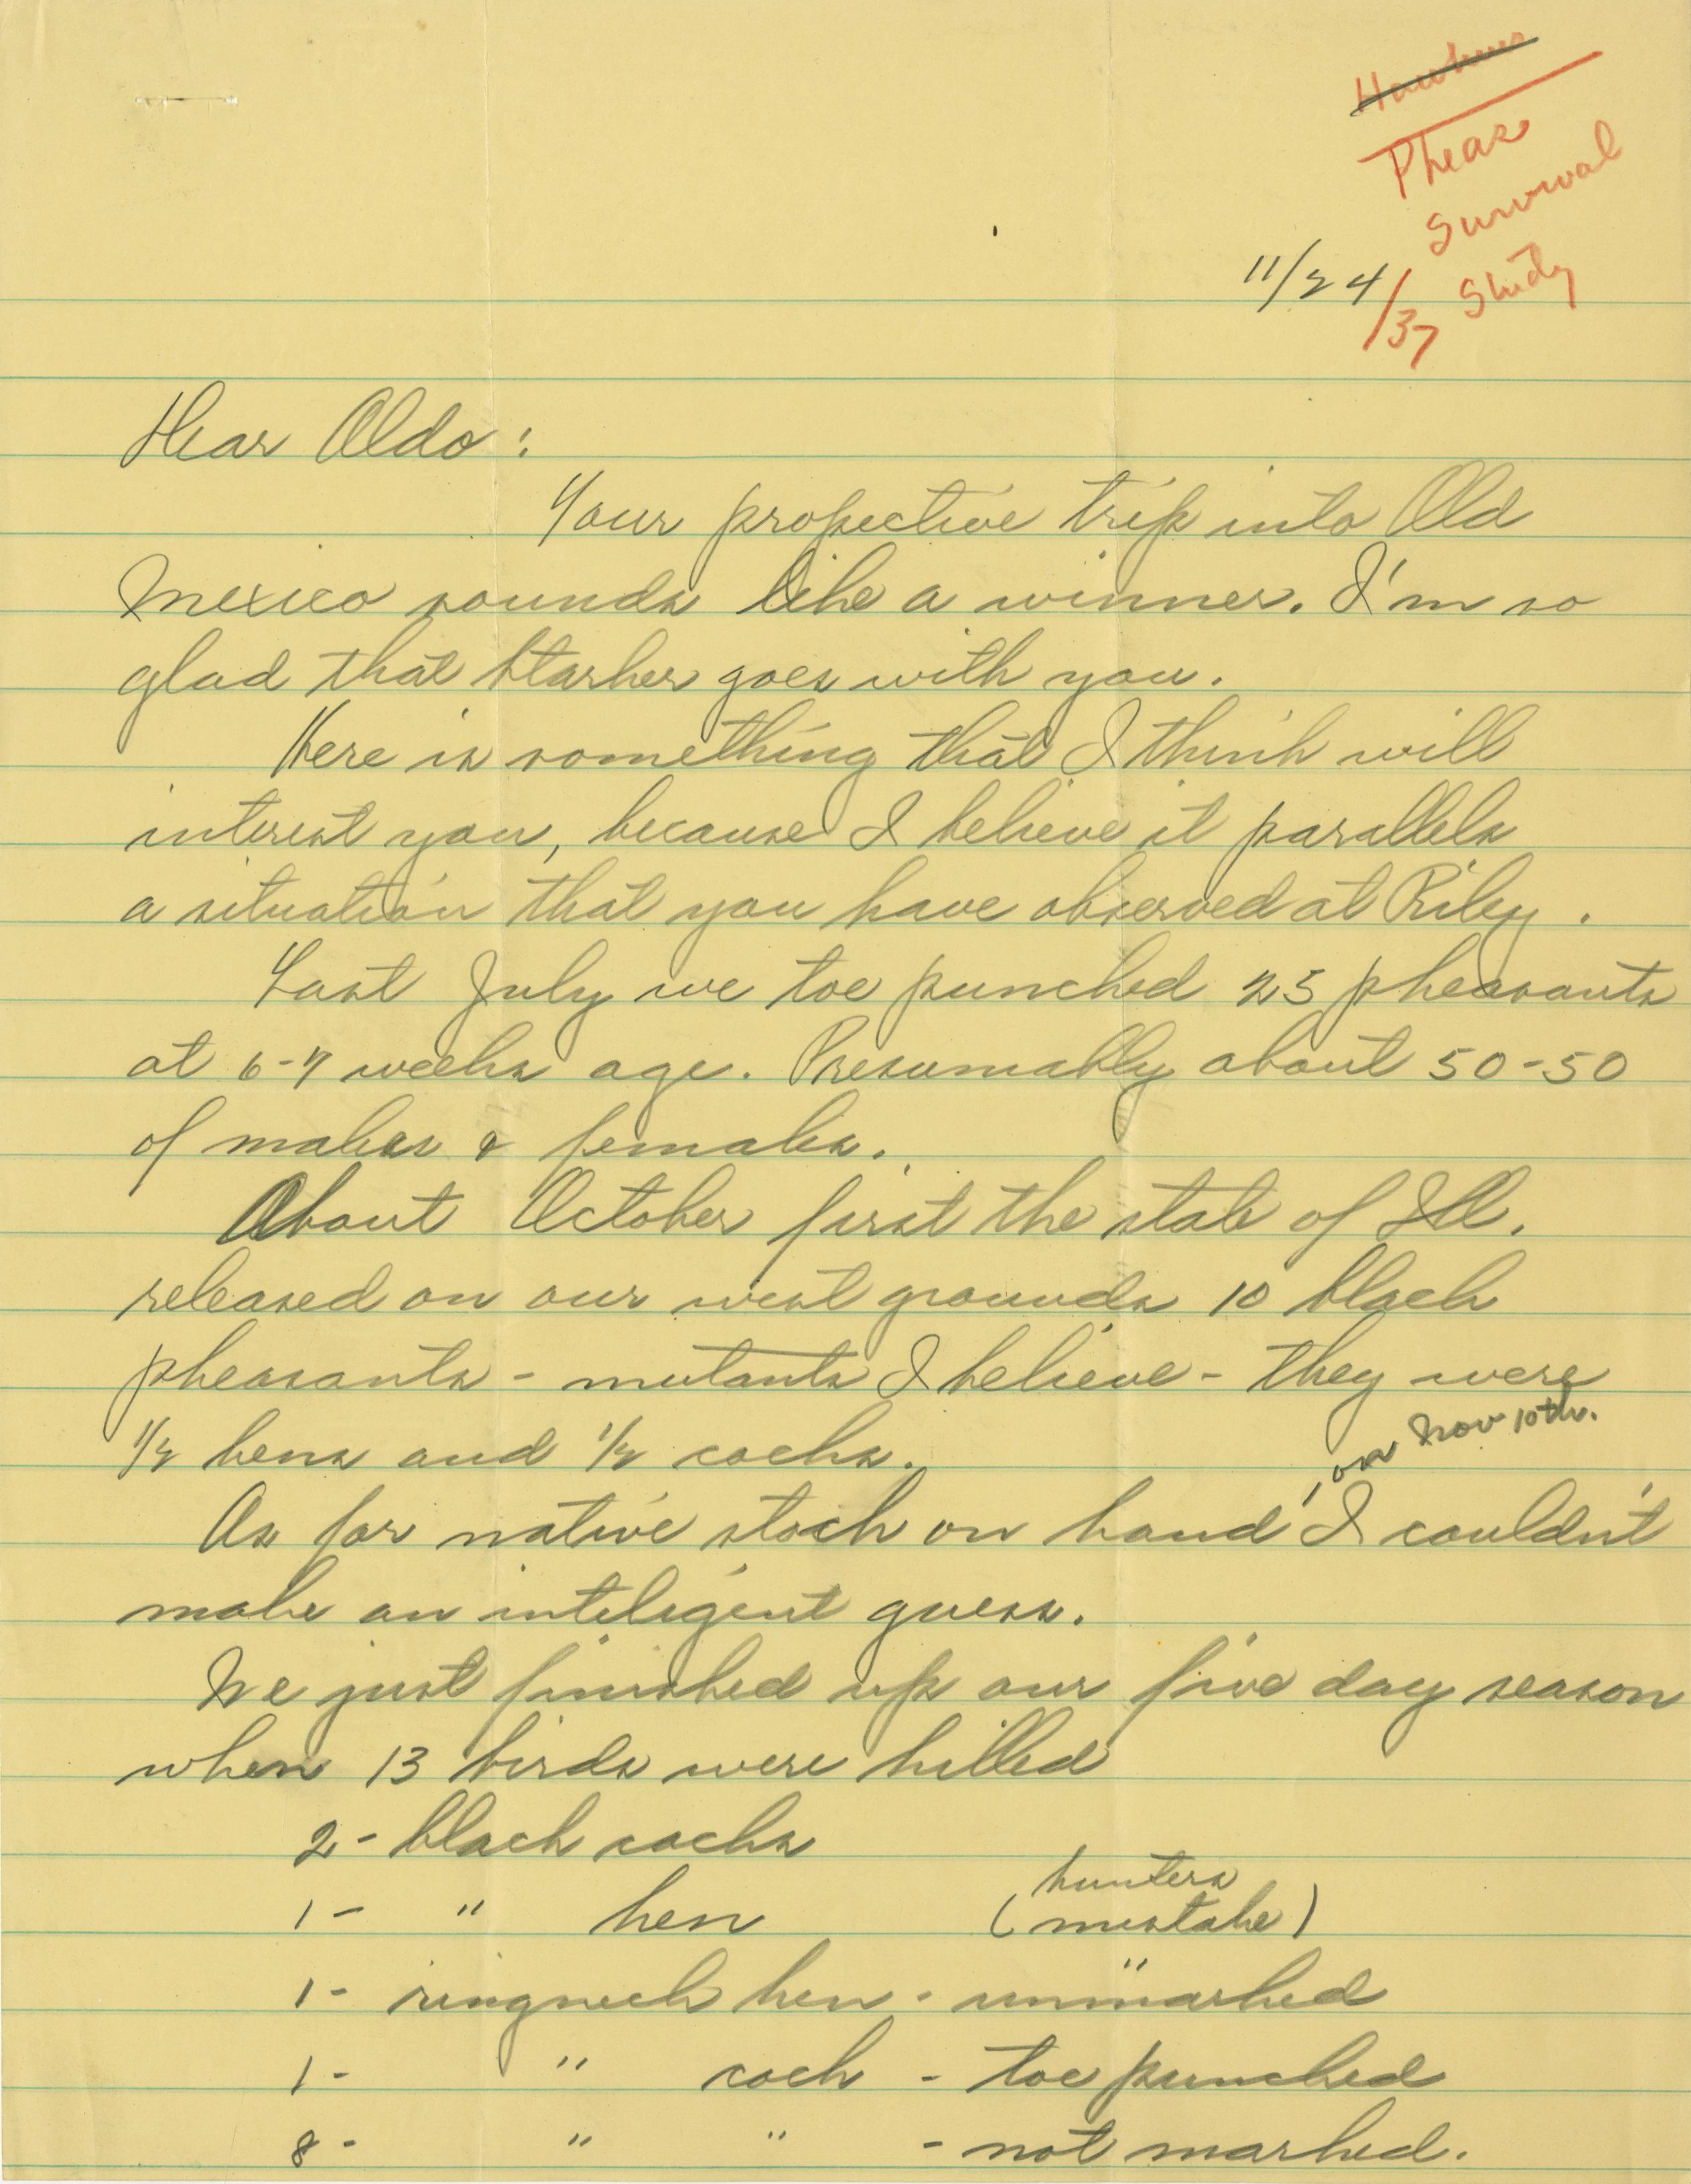 Hawkins
Pheas
Survival
Study
11/24/37
Dear Aldo:
Your propective trip into Old
Mexico sounds like a winner. I'm so
glad that Starker goes with you.
Here is something that I think will
interest you, because I believe it parallels
a situation that you have observed at Riley.
Last July we toe punched 25 pheasants
at 6-7 weeks age. Presumably about 50-50
of males & females.
About October first the state of Ill.
released on our west grounds 10 black
pheasants - mutants I believe - they were
1/2 hens and 1/2 cocks.
on Nov 10th.
As for native stock on hand, I couldn't
make an inteligent guess.
We just finished up our five day season
when 13 birds were killed
2 - black cocks
hunters
1 - " hen (mistake)
1 - ringneck hen - " unmarked
1 - " cock - toe punched
8 - " " - not marked.